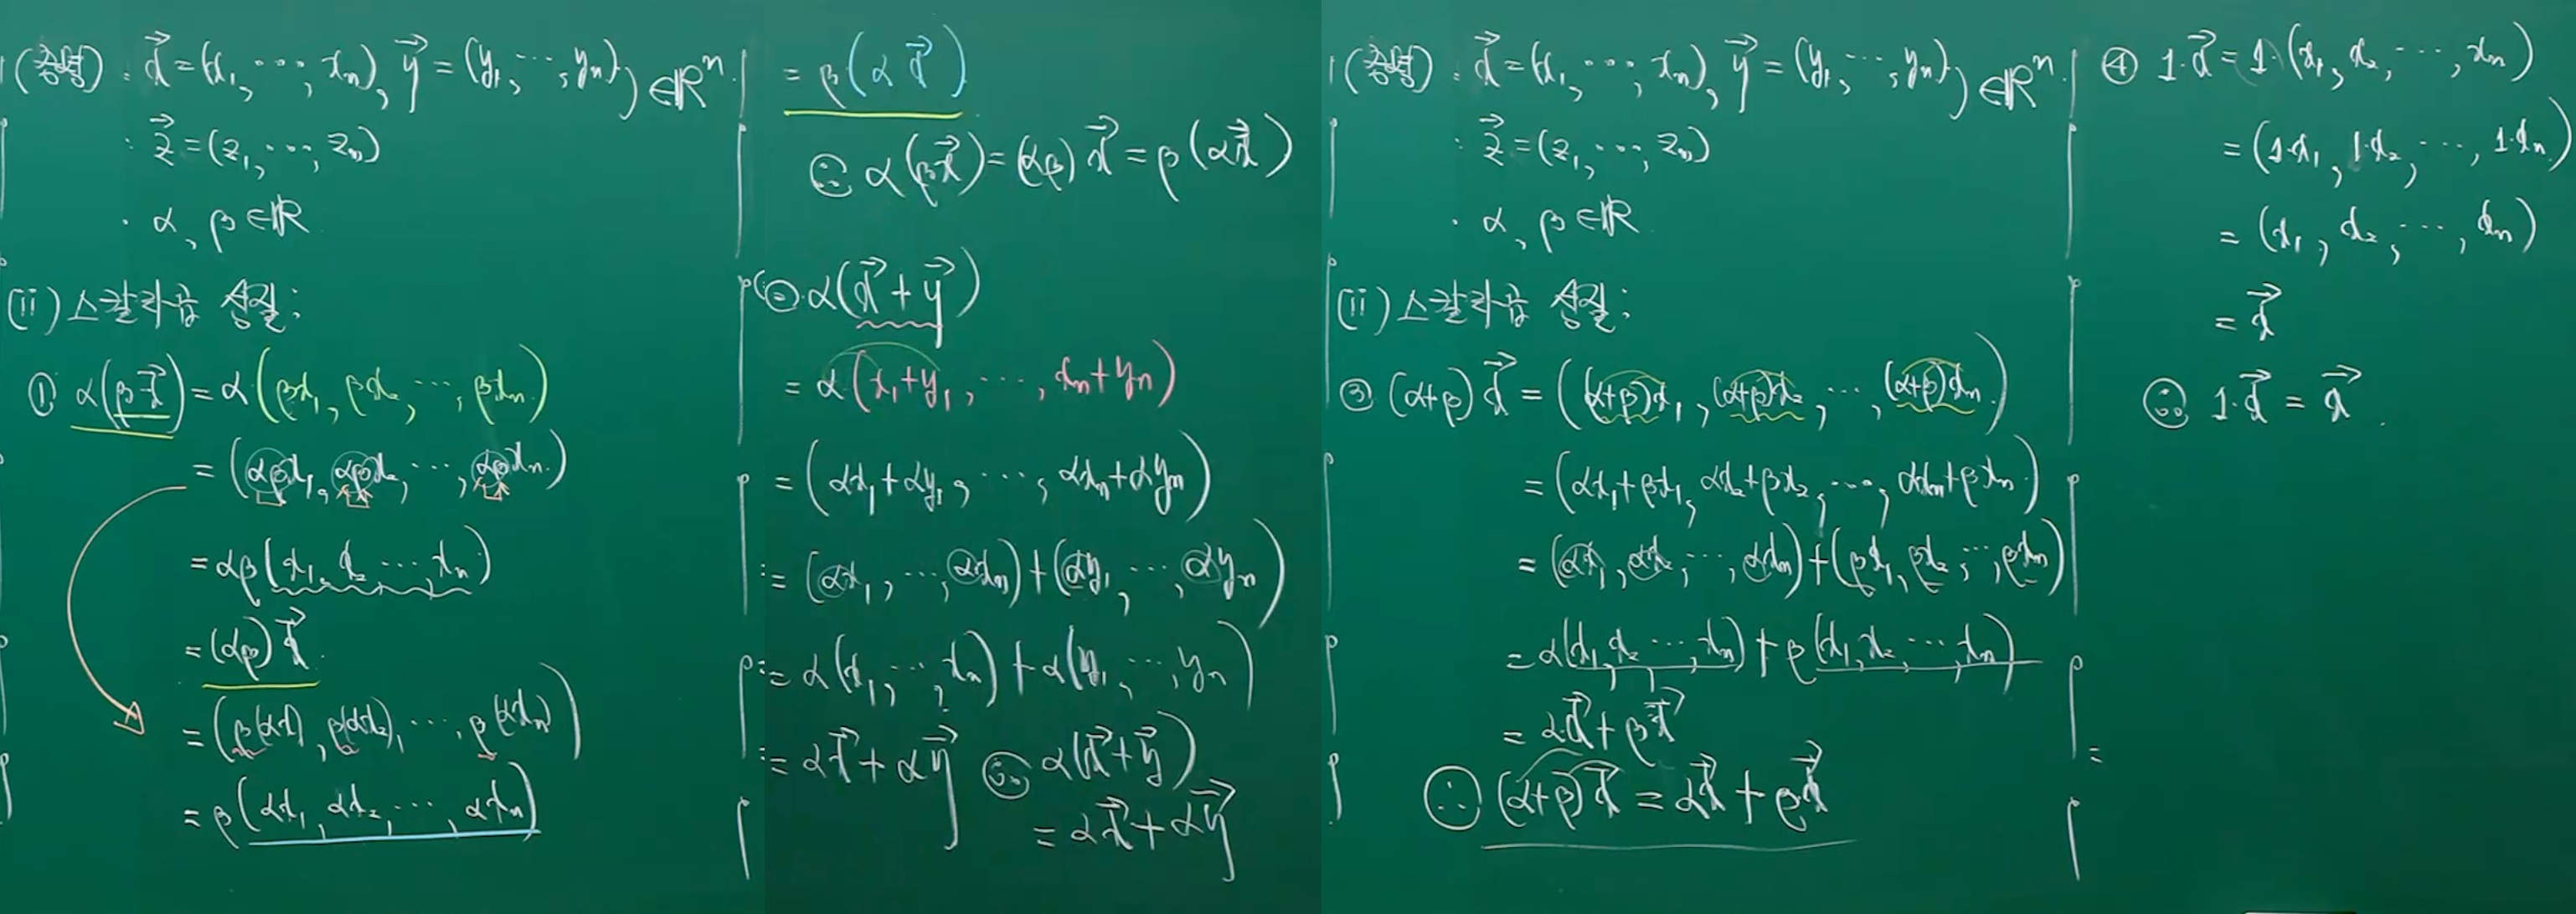 (증명) · x⃗ = (x₁, ⋯, xₙ), y⃗ = (y₁, ⋯, yₙ) ∈ ℝⁿ.
· z⃗ = (z₁, ⋯, zₙ)
· α, β ∈ ℝ
(ii) 스칼라곱 성질:
① α(βx⃗) = α(βx₁, βx₂, ⋯, βxₙ)
= (αβx₁, αβx₂, ⋯, αβxₙ)
= αβ(x₁, x₂, ⋯, xₙ)
= (αβ)x⃗
= (β(αx₁), β(αx₂), ⋯, β(αxₙ))
= β(αx₁, αx₂, ⋯, αxₙ)
= β(αx⃗)
∴ α(βx⃗) = (αβ)x⃗ = β(αx⃗)
② α(x⃗ + y⃗)
= α(x₁+y₁, ⋯, xₙ+yₙ)
= (αx₁+αy₁, ⋯, αxₙ+αyₙ)
= (αx₁, ⋯, αxₙ) + (αy₁, ⋯, αyₙ)
= α(x₁, ⋯, xₙ) + α(y₁, ⋯, yₙ)
= αx⃗ + αy⃗ ∴ α(x⃗+y⃗)
= αx⃗ + αy⃗
(증명) · x⃗ = (x₁, ⋯, xₙ), y⃗ = (y₁, ⋯, yₙ) ∈ ℝⁿ.
· z⃗ = (z₁, ⋯, zₙ)
· α, β ∈ ℝ
(ii) 스칼라곱 성질:
③ (α+β)x⃗ = ((α+β)x₁, (α+β)x₂, ⋯, (α+β)xₙ)
= (αx₁+βx₁, αx₂+βx₂, ⋯, αxₙ+βxₙ)
= (αx₁, αx₂, ⋯, αxₙ) + (βx₁, βx₂, ⋯, βxₙ)
= α(x₁, x₂, ⋯, xₙ) + β(x₁, x₂, ⋯, xₙ)
= αx⃗ + βx⃗
∴ (α+β)x⃗ = αx⃗ + βx⃗
④ 1·x⃗ = 1·(x₁, x₂, ⋯, xₙ)
= (1·x₁, 1·x₂, ⋯, 1·xₙ)
= (x₁, x₂, ⋯, xₙ)
= x⃗
∴ 1·x⃗ = x⃗.
=